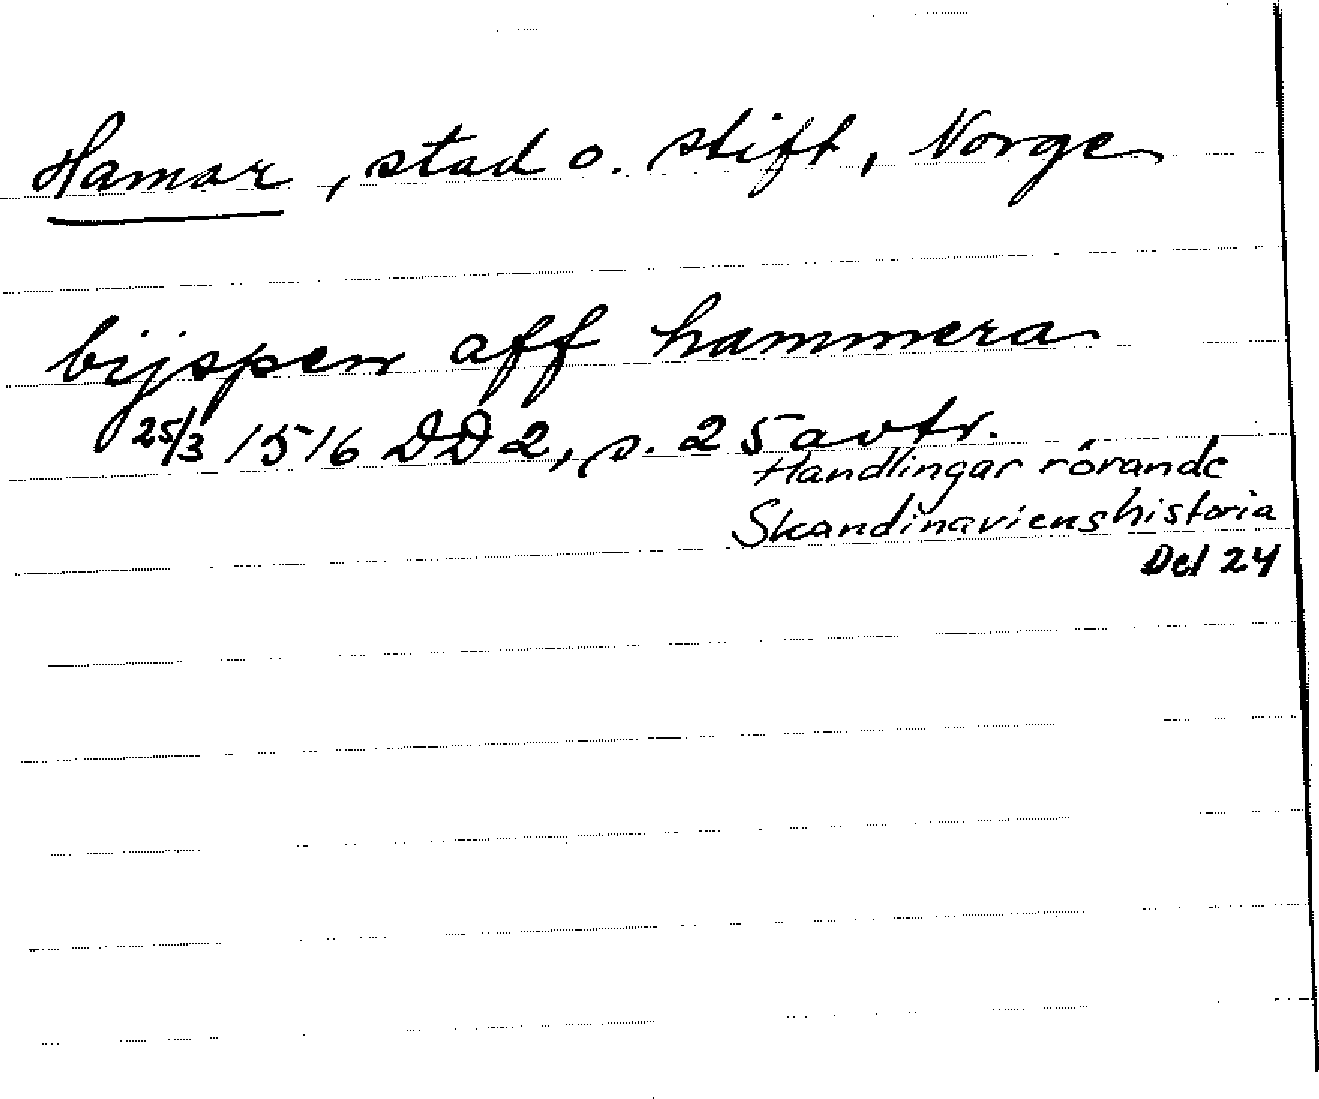 Hamar, stad o. stift, Norge
bijspen aff hammera
25/3 1516 DD 2, s. 25 avtr.
Handlingar rörande
Skandinaviens historia
Del 24